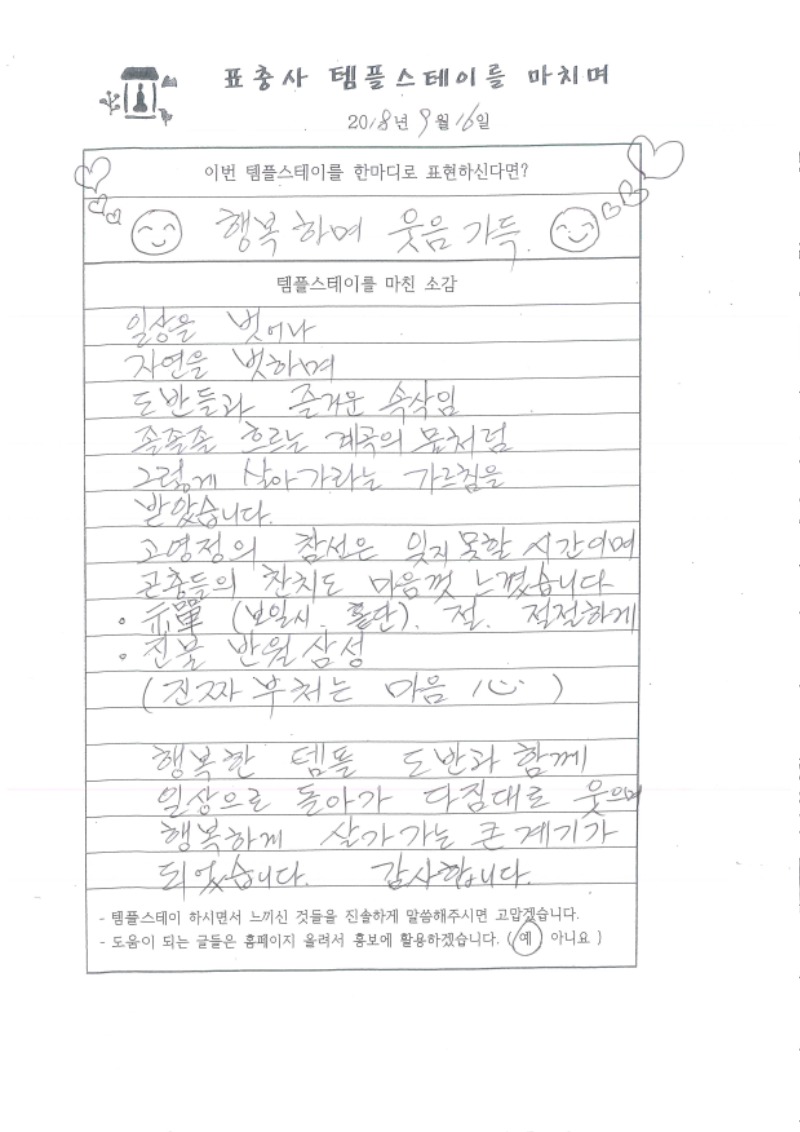 표충사 템플스테이를 마치며
2018년 9월 16일
이번 템플스테이를 한마디로 표현하신다면?
행복하며 웃음가득.
템플스테이를 마친 소감
일상을 벗어나
자연을 벗하며
도반들과 즐거운 속삭임
졸졸졸 흐르는 계곡의 물처럼
그렇게 살아가라는 가르침을
받았습니다.
고영정의 참선은 잊지 못할 시간이며
곤충들의 잔치도 마음껏 느꼈습니다
· 示單 (보일시. 홑단). 절. 절절하게
· 진물 반월삼성
(진짜 부처는 마음 心)
행복한 템플 도반과 함께
일상으로 돌아가 다짐대로 웃으며
행복하게 살가가는 큰 계기가
되었습니다. 감사합니다.
- 템플스테이 하시면서 느끼신 것들을 진솔하게 말씀해주시면 고맙겠습니다.
- 도움이 되는 글들은 홈페이지 올려서 홍보에 활용하겠습니다. ( 예 아니요 )